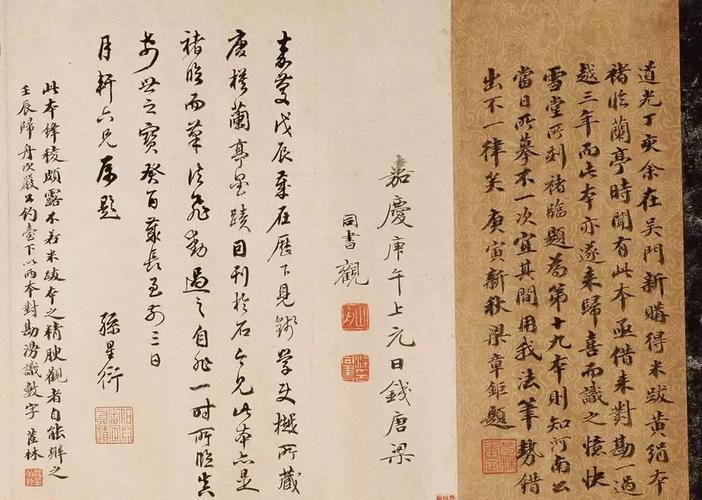 道光丁亥余在吳門新購得米跋黃絹本
褚臨蘭亭時聞有此本亟借来對勘一過
越三年而此本亦遂来歸喜而識之憶快
雪堂所刻褚臨題為第十九本則知河南公
當日所摹不一次宜其間用我法筆勢錯
出不一律矣 庚寅新秋梁章鉅題
嘉慶庚午上元日錢唐梁
同書觀
嘉慶戊辰歲在歷下見錢學使樾所藏
唐橅蘭亭墨蹟因刊於石今見此本亦是
褚臨而筆法飛動過之自非一時所臨真
希世之寶癸酉歲長至前三日
月軒六兄屬題
孫星衍
此本鋒稜頗露不若米跋本之精腴觀者自能辨之
壬辰歸舟次嚴公釣臺下以兩本對勘漫識數字 茝林